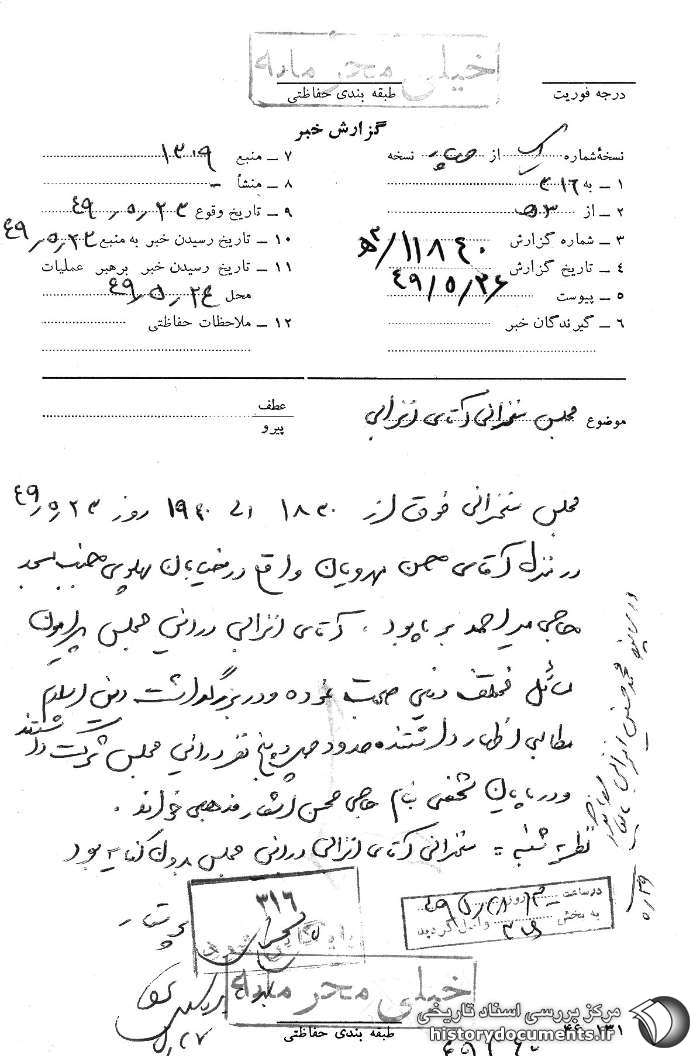 خیلی محرمانه
طبقه بندی حفاظتی
درجه فوریت
گزارش خبر
نسخهٔ شماره یک از چهار نسخه
۱ ــ به ۳۱۶
۲ ــ از ۵۳
۳ ــ شماره گزارش ۱۱۸۴۰/ ۵۳
۴ ــ تاریخ گزارش ۴۹/۵/۲۶
۵ ــ پیوست
۶ ــ گیرندگان خبر
۷ ــ منبع ۱۳۰۹
۸ ــ منشأ ــ
۹ ــ تاریخ وقوع ۴۹٫۵٫۲۳
۱۰ ــ تاریخ رسیدن خبر به منبع ۴۹٫۵٫۲۳
۱۱ ــ تاریخ رسیدن خبر برهبر عملیات
محل ۴۹٫۵٫۲۴
۱۲ ــ ملاحظات حفاظتی
موضوع مجلس سخنرانی آقای انزابی
عطف
پیرو
مجلس سخنرانی فوق از ۱۸۳۰ الی ۱۹۴۰ روز ۴۹٫۵٫۲۳
در منزل آقای محسن مهرویان واقع در خیابان پهلوی جنب مسجد
حاجی میراحمد برپا بود. آقای انزابی در این مجلس پیرامون
مسائل مختلف دینی صحبت نموده و در بزرگداشت دین اسلام
مطالبی اظهار داشتند حدود سی و پنج نفر در این مجلس شرکت داشتند
و در پایان شخصی بنام حاجی محسن اشعار مذهبی خواند.
نظریه شنبه = سخنرانی آقای انزابی در این مجلس بدون کنایه بود
در ساعت روز
به بخش ۳۱۶ واصل گردید
۳۱۶
بایگانی شود
خیلی محرمانه
طبقه بندی حفاظتی
۴۶-۱۳۱
مرکز بررسی اسناد تاریخی
historydocuments.ir